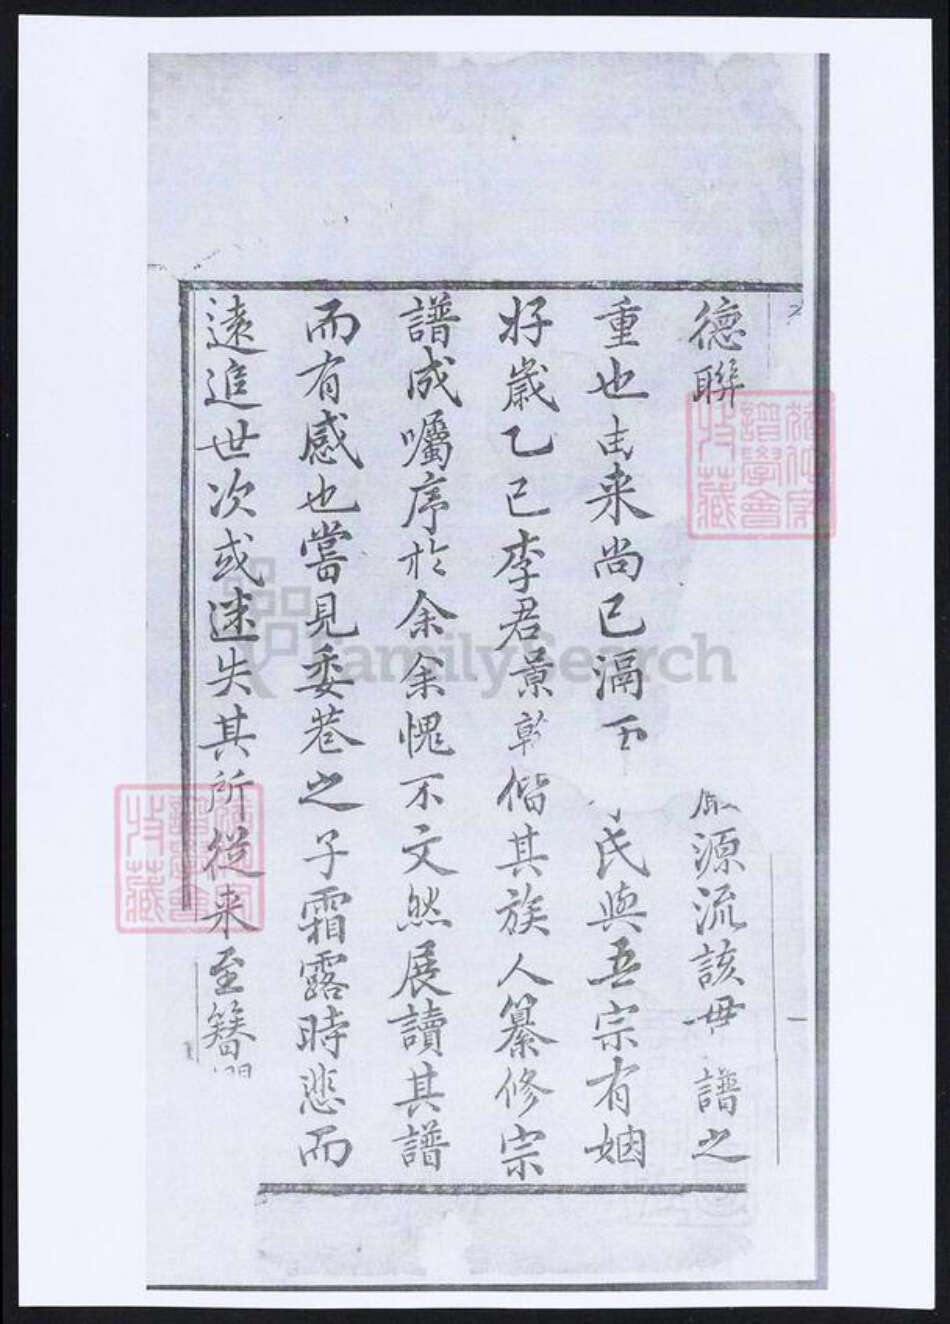 德聯 源流該毋 譜之
重也由来尚已滆 氏與吾宗有姻
好歲乙已李君景乾偕其族人纂修宗
譜成囑序於余余愧不文然展讀其譜
而有感也嘗見委巷之子霜露時悲而
遠追世次或迷失其所從来至簪
FamilySearch
譜學會
收藏